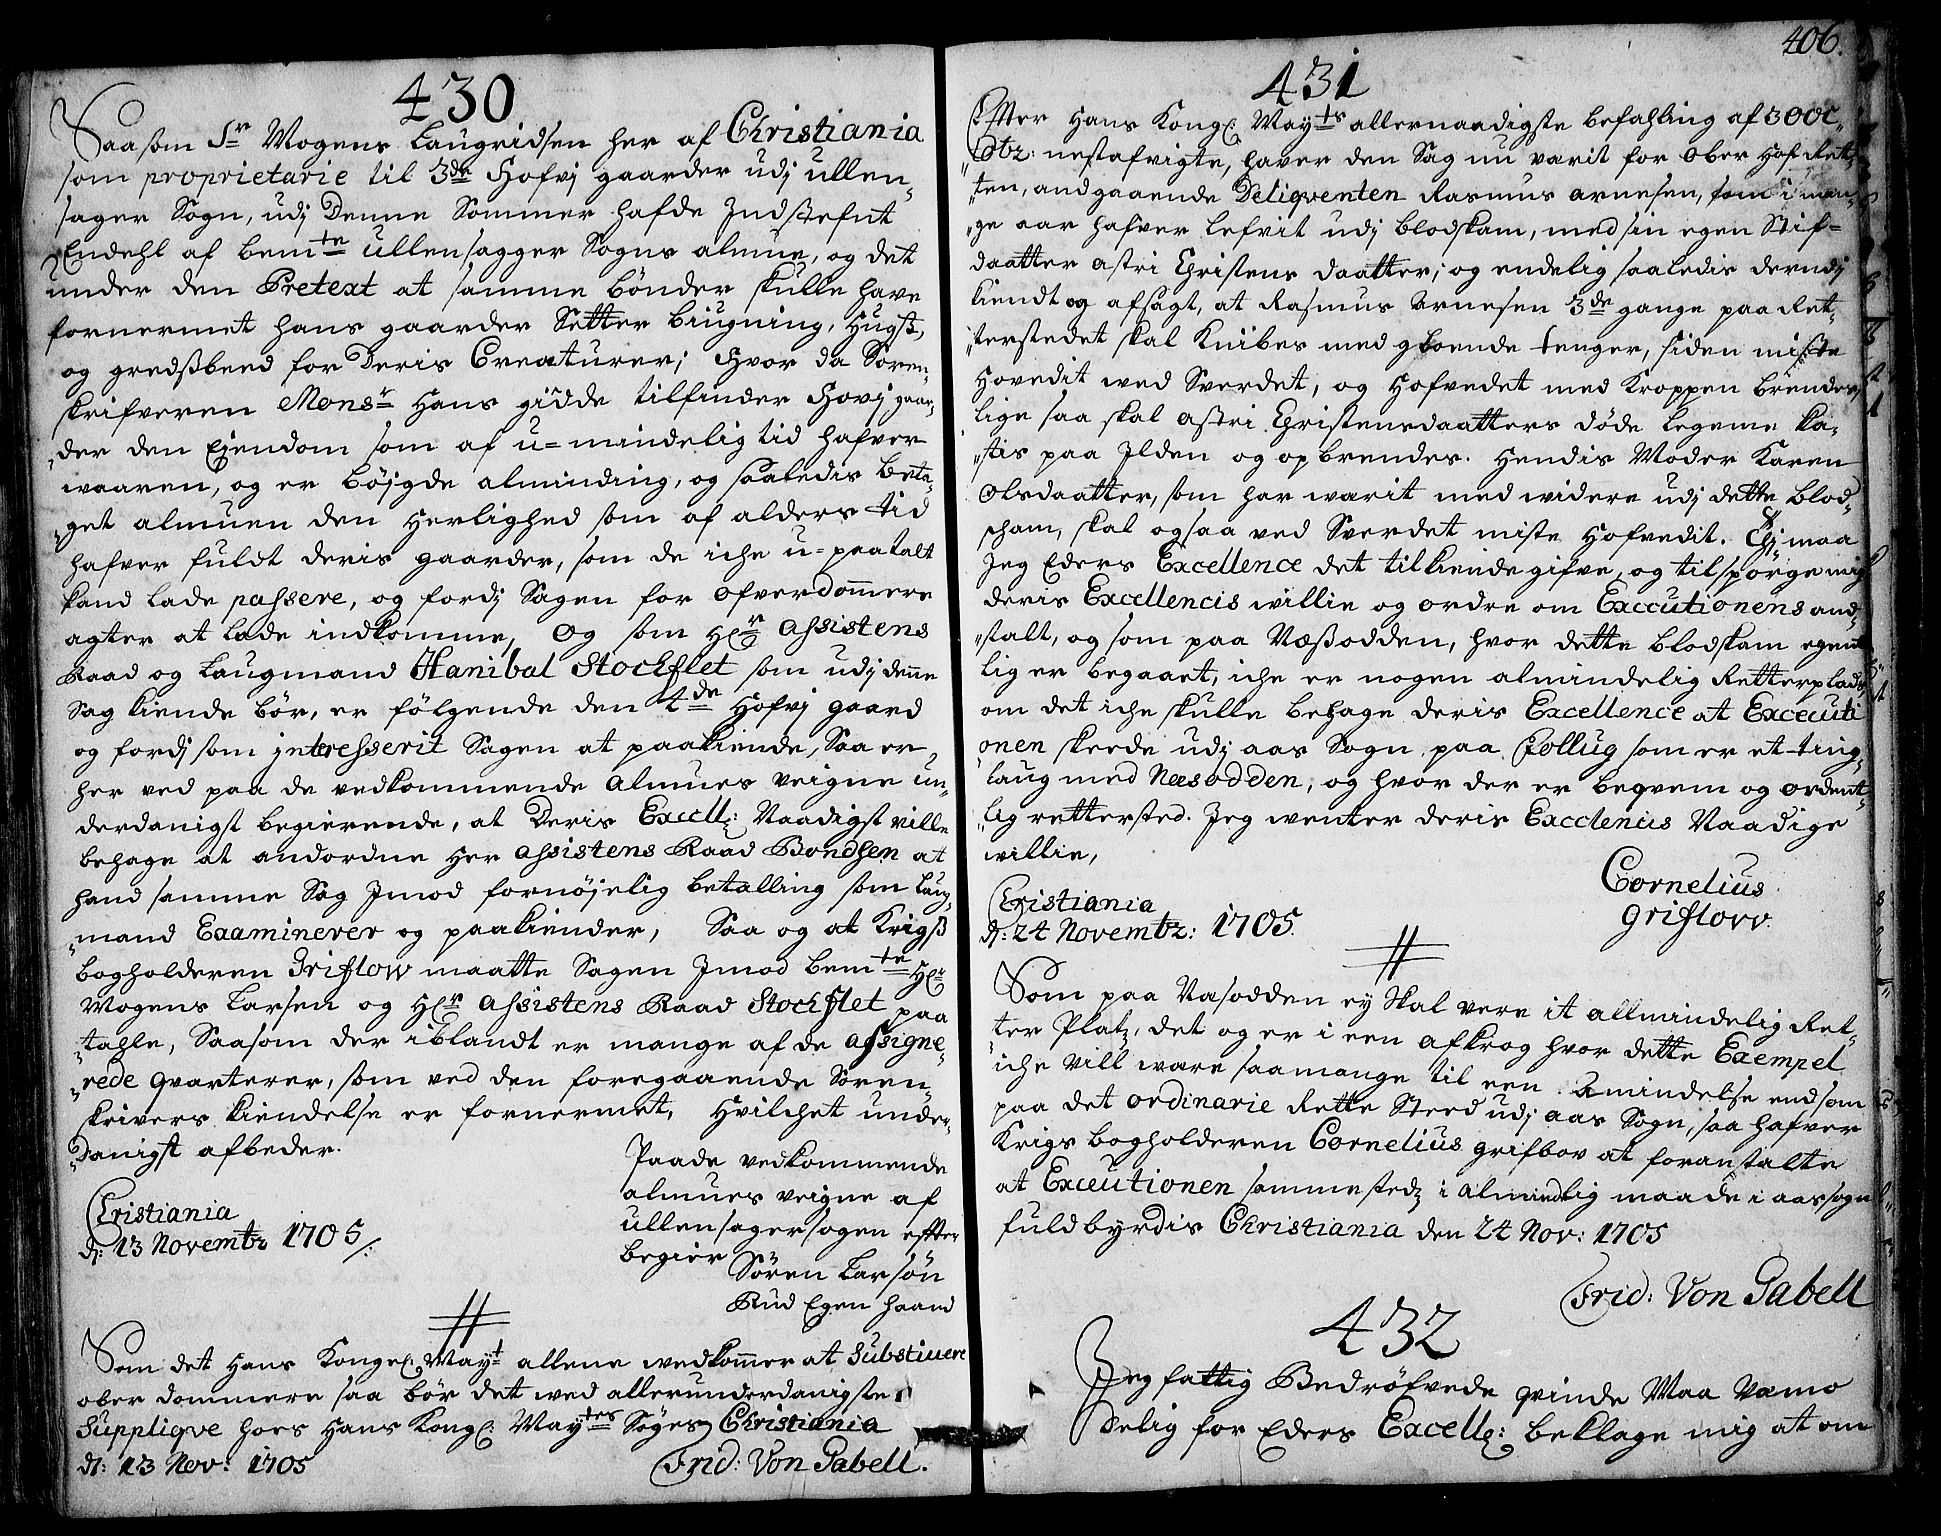 430
Saasom Sr Mogens Laugridsen her af Christiania
som proprietarie til 3de Hofvj gaarder udj ullen„
sager Sogn, udj Denne Sommer hafde Indstefnt
Endehl af bemte ullensagger Sogns almue, og det
under den Pretext at samme bönder skulle have
fornermet hans gaarder Setter biugning, Hugst,
og gredsbeed for Deris Creaturer; Hvor da Soren„
skrifveren Monsr Hans gidde tilfinder Hovj gaar„
„der den Eiendom som af u=mindelig tid hafver
waaren, og er böjgde alminding, og saaledis beta„
„get almuen den Herlighed som af alders tid
hafver fuldt deris gaarder, som de iche u=paatalt
kand lade passere, og fordj Sagen for ofverdommere
agter at lade indkomme, og som Hr assistens
Raad og Laugmand Hanibal Stockflet som udj denne
Sag kiende bör, er fölgende den 4de Hofvj gaard
og fordj som interesserit Sagen at paakiende, Saa er
her ved paa de vedkommende almues veigne un„
derdanigst begierende, at Deris Excell: Naadigst ville
behage at andordne Her assistens Raad Bondsen at
hand samme Sag Imod fornöjelig betalling som Laug„
„mand Examinerer og paakiender, Saa og at Krigs
bogholderen Griflow maatte Sagen Imod bemte Hr
Mogens Larsen og Hr assistens Raad Stockflet paa
„tahle, Saasom der iblandt er mange af de assigne„
„rede qvarterer, som ved den foregaaende Soren„
skrivers kiendelse er fornermet, Hvilchet under„
„danigst afbeder.
Paade vedkommende
almues veigne af
ullensagersogen effter
begier
Sören Larsön
Rud Egen haand
Christiania
d: 13 Novembr 1705/:
Som det Hans Kongel: Mayt allene vedkommer at Substituere
ober dommere saa bör det ved allerunderdanigste
Suppliqve hoes Hans Kongl: Mayts Söges Christiania
d: 13 Nov: 1705
Frid: Von Gabell.
406.
431
Effter Hans Kongl: Mayts allernaadigste befahling af 30 oc„
„tbr: nestafvigte, haver den Sag nu varit for ober Hof Ret„
„ten, andgaaende Deliqventen Rasmus arnesen, som i man„
„ge aar hafver lefvit udj blodskam, med sin egen Stif=
daatter astri Christens daatter, og endelig saaledis derudj
kiendt og afsagt, at Rasmus Arnesen 3de gange paa Ret„
„terstedet skal Knibes med gloende tenger, siden miste
Hovedit med Sverdet, og Hofvedet med Kroppen brendes,
lige saa skal astri Christensdaatters döde legeme ka„
„stis paa Ilden og opbrendes. Hendis Moder Karen
olsdaatter, som har warit med widere udj dette blod„
scham, skal ogsaa ved Sverdet miste Hofvedit. Ej maa
Jeg Eders Excellence det tilkiende gifve, og tilspörge mig
deris Excellencis willie og ordre om Executionens and„
„stalt, og som paa Næsodden, hvor dette blodskam egent„
lig er begaaet, iche er nogen almindelig Retterplads,
om det iche skulle behage deris Excellence at Excecuti
onen skeede udj aas Sogn paa Follug som er et ting„
„laug med Næsodden, og hvor der er beqvem og ordent„
„lig rettersted. Jeg wenter deris Excelencis Naadige
willie,
Cornelius
Griflow.
Christiania
d: 24 Novembr: 1705.
Som paa Næsodden ey Skal vere it allmindelig Ret„
„ter Platz, det og er i een afkrog hvor dette Exempel
iche vill ware saamange til een Amindelse end som
paa det ordinarie Rette Sted udj aas Sogn, saa hafver
Krigs bogholderen Cornelius grifbov at foranstalte
at Executionen sammestedz i almindlig maade i aassogn
fuldbyrdis Christiania den 24 Nov: 1705
Frid: Von Gabell
432
Jeg fattig Bedröfvede qvinde Maa Væmo
delig for Eders Excell: beklage mig at om